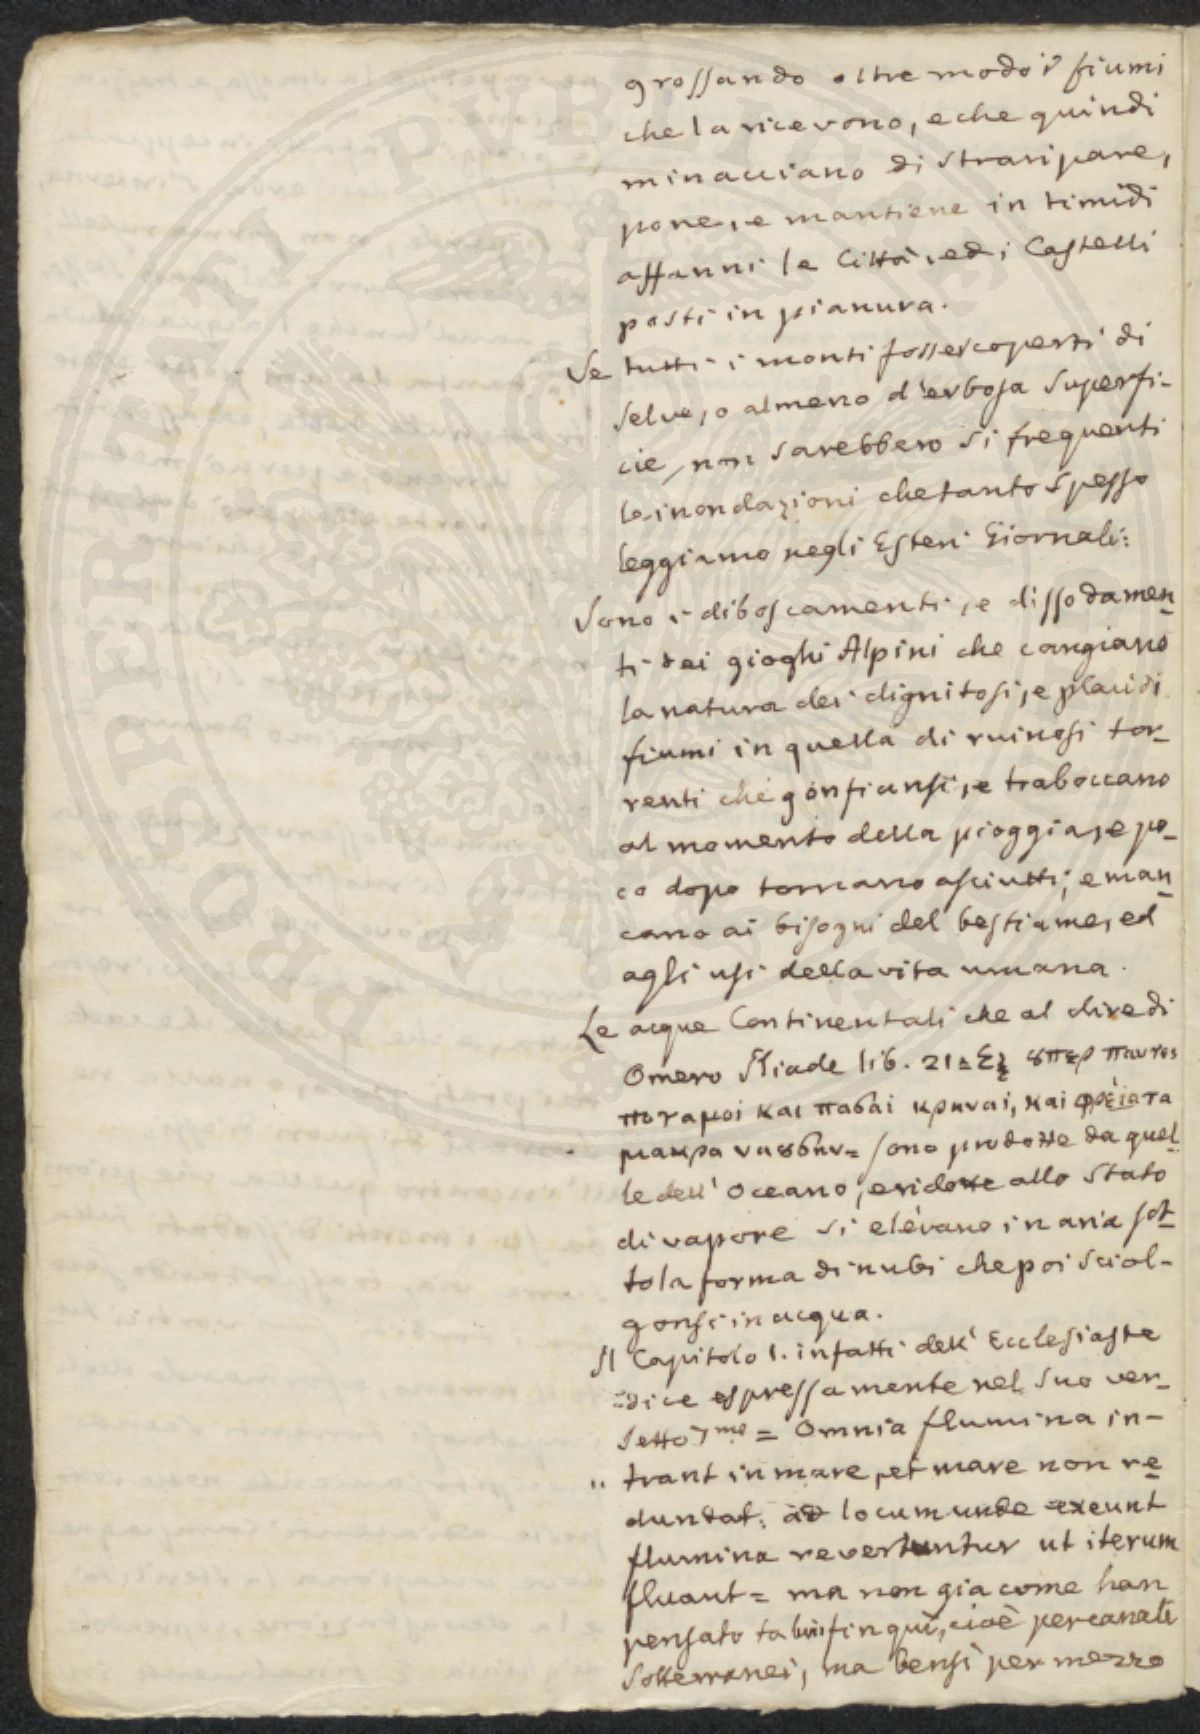 grossando oltre modo i fiumi
che la ricevono, e che quindi
minacciano di straripare,
pone, e mantiene in timidi
affanni le Città, ed i Castelli
posti in pianura.
Se tutti i monti fosser coperti di
selve, o almeno d'erbosa superfi-
cie, non sarebbero sì frequenti
le inondazioni che tanto spesso
leggiamo negli Esteri Giornali:
Sono i diboscamenti, e dissodamen-
ti dei gioghi Alpini che cangiano
la natura dei dignitosi, e placidi
fiumi in quella di ruinosi tor-
renti che gonfiansi, e traboccano
al momento della pioggia, e po-
co dopo tornano asciutti, e man-
cano ai bisogni del bestiame, ed
agli usi della vita umana.
Le acque Continentali che al dire di
Omero Iliade lib. 21 = Εξ ȣπερ παντες
ποταμοι και πασαι κρηναι, και φρείατα
μακρα ναȣσιν = sono prodotte da quel-
le dell' Oceano, e ridotte allo stato
di vapore si elevano in aria sot-
to la forma di nubi che poi sciol-
gonsi in acqua.
Il Capitolo 1. infatti dell' Ecclesiaste
dice espressamente nel suo ver-
setto 7mo = Omnia flumina in-
" trant in mare, et mare non re-
dundat: ad locum unde exeunt
flumina revertuntur ut iterum
fluant = ma non già come han
pensato finquì, cioè per canali
sotterranei, ma bensì per mezzo
PROSPERITATI PVBLICAE